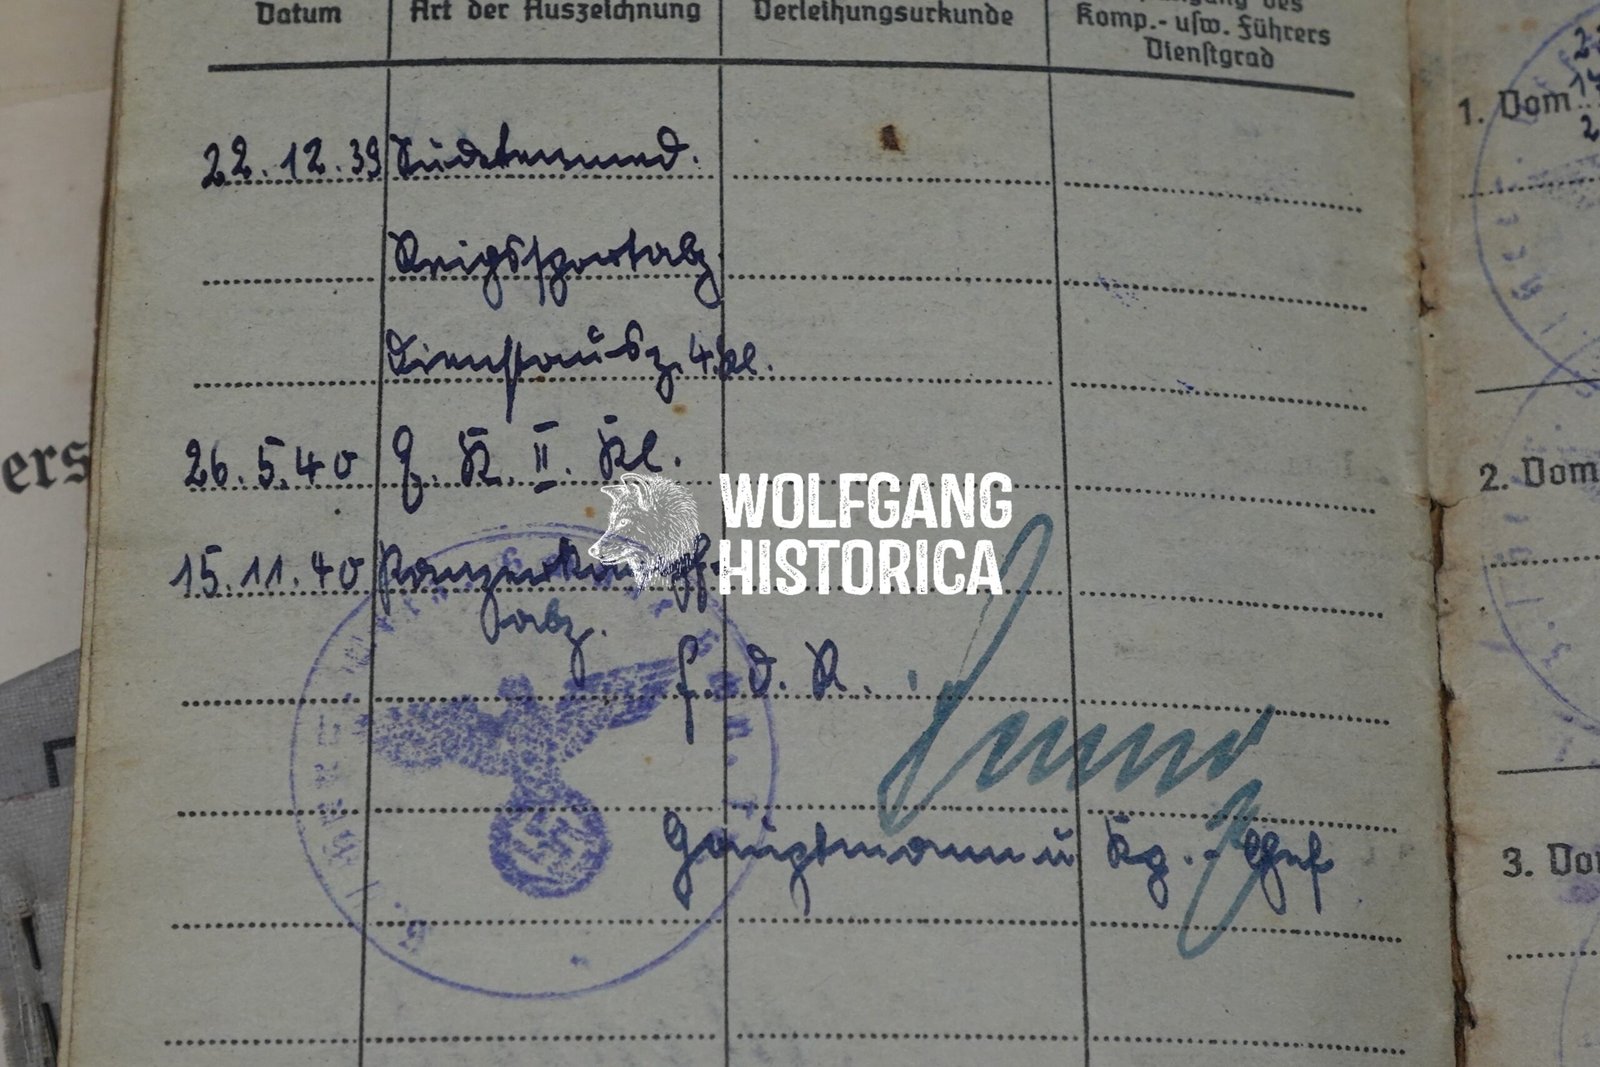 Datum
Art der Auszeichnung
Verleihungsurkunde
des
Komp.- usw. Führers
Dienstgrad
22.12.39 Sudetenmed.
Kriegssportabz.
Dienstausz. 4. Kl.
26.5.40 E. K. II. Kl.
15.11.40 Panzerkampf-
abz.
f. d. R.
Hauptmann u Kp.-Chef
WOLFGANG
HISTORICA
ers
1. Vom
2. Vom
3. Vo